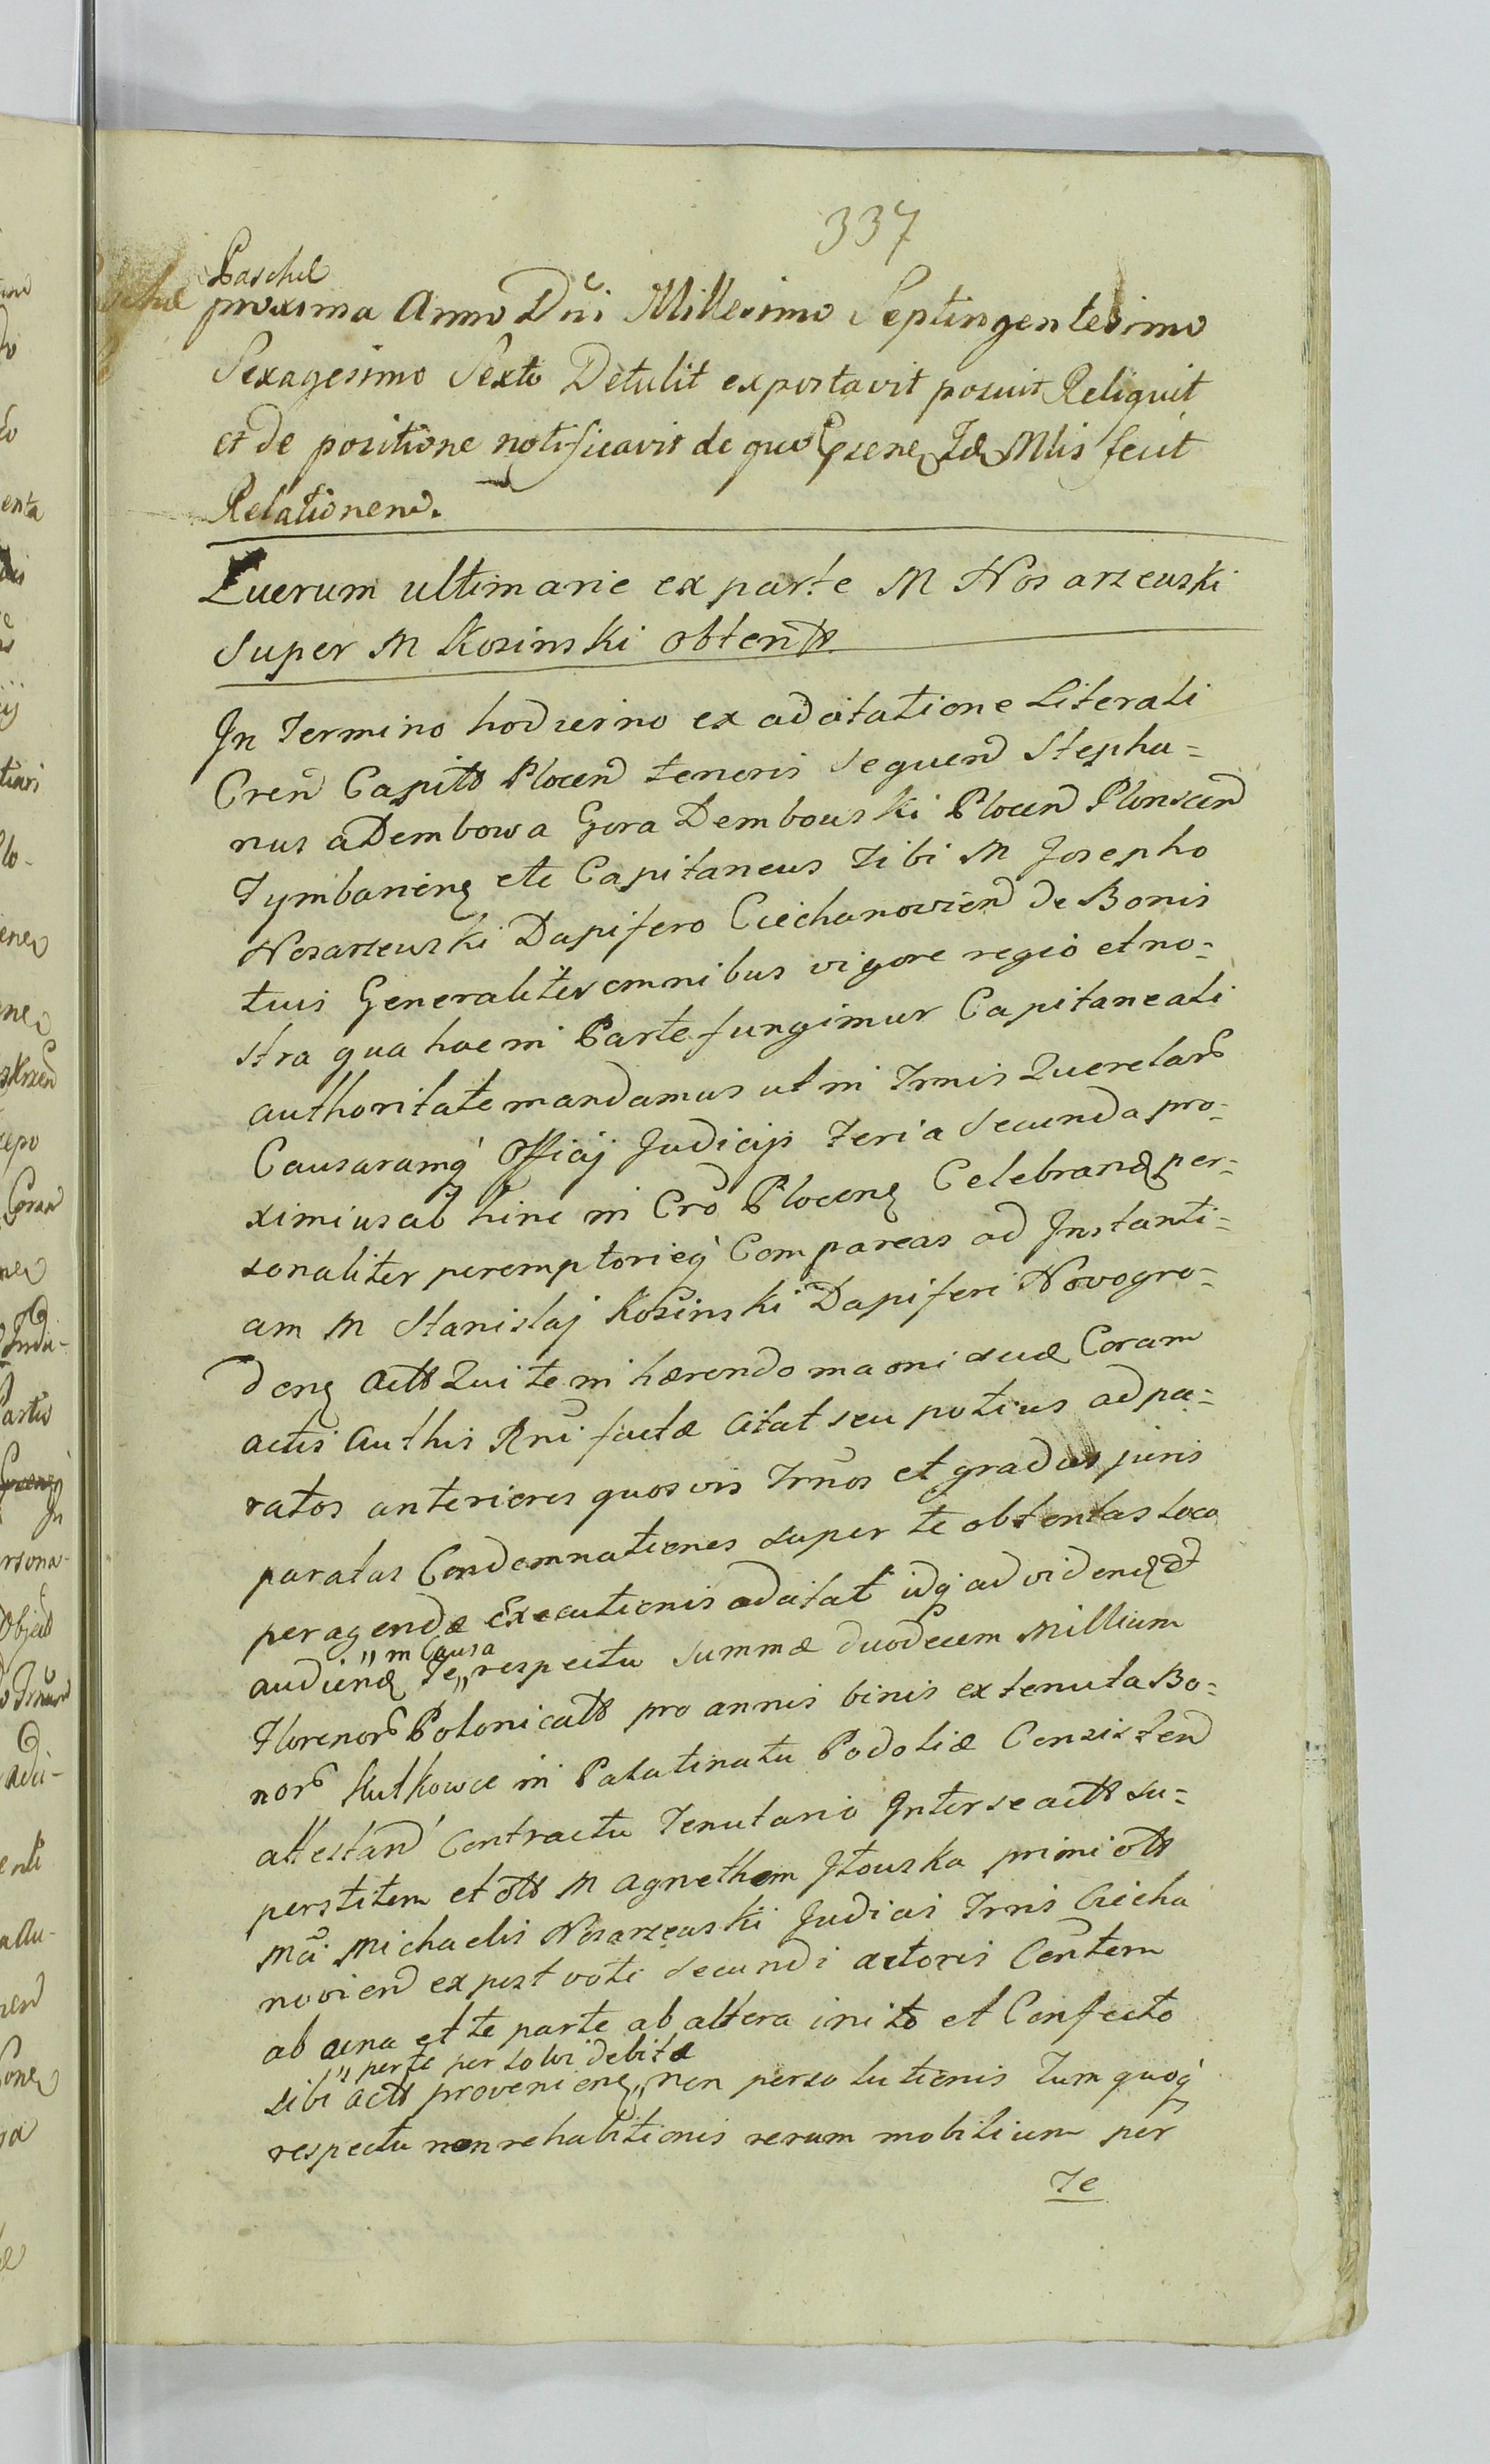 337
Paschæ
proxima Anno Dni Millesimo Septingentesimo
Sexagesimo Sexto Detulit exportavit posuit Reliquit
et de positione notificavit de quo Præsene Ide Mlis fecit
Relationem.
Luerum ultimarie ex parte M Nosarzewski
Super M Kosinski obtent
In Termino hodierno ex adcitatione Literali
Cren Capitt Plocen tenoris sequen Stepha=
nus a Dembowa Gora Dembowski Plocen Plonscen
Tymbarieng etc Capitaneus Tibi M Josepho
Nosarzewski Dapifero Ciechanovien de Bonis
tuis Generaliter omnibus vigore regio et no=
stra qua hac in Parte fungimur Capitaneali
authoritate mandamus ut in Trmis Querelar
Causarumq Officij Judicijs Feria Secunda pro=
ximius ab hinc in Cro Ploceng Celebrang per=
sonaliter peremptorieq Compareas ad Instanti=
am M Stanislaj Kosinski Dapiferi Novogro=
deng Actt Qui te in hærendo maoni suæ Coram
actis Authis Rni factæ Citat seu potius ad pa=
ratos anteriores quosvis Trnos et gradus juris
paratas Condemnationes super te obtentas loco
peragendæ Executionis adcitat idq ad videng et
„in Causa
audieng Te„ respectu Summæ duodecem Millium
Florenor Polonicatt pro annis binis ex tenuta Bo=
nor Kutkowce in Palatinatu Podoliæ Consisten
attestan Contractu Tenutario Inter se actt su=
perstitem et ott M Agnethem Itowska primi ott
Mci Michaelis Nosarzewski Judicis Trris Ciecha
novien expost voti secundi actoris Contem
ab una et te parte ab altera inito et Confecto
„per te persolvi debitæ
sibi actt provenieng„ non persolutionis Tum quoq
respectu non rehabitionis rerum mobilium per
Te